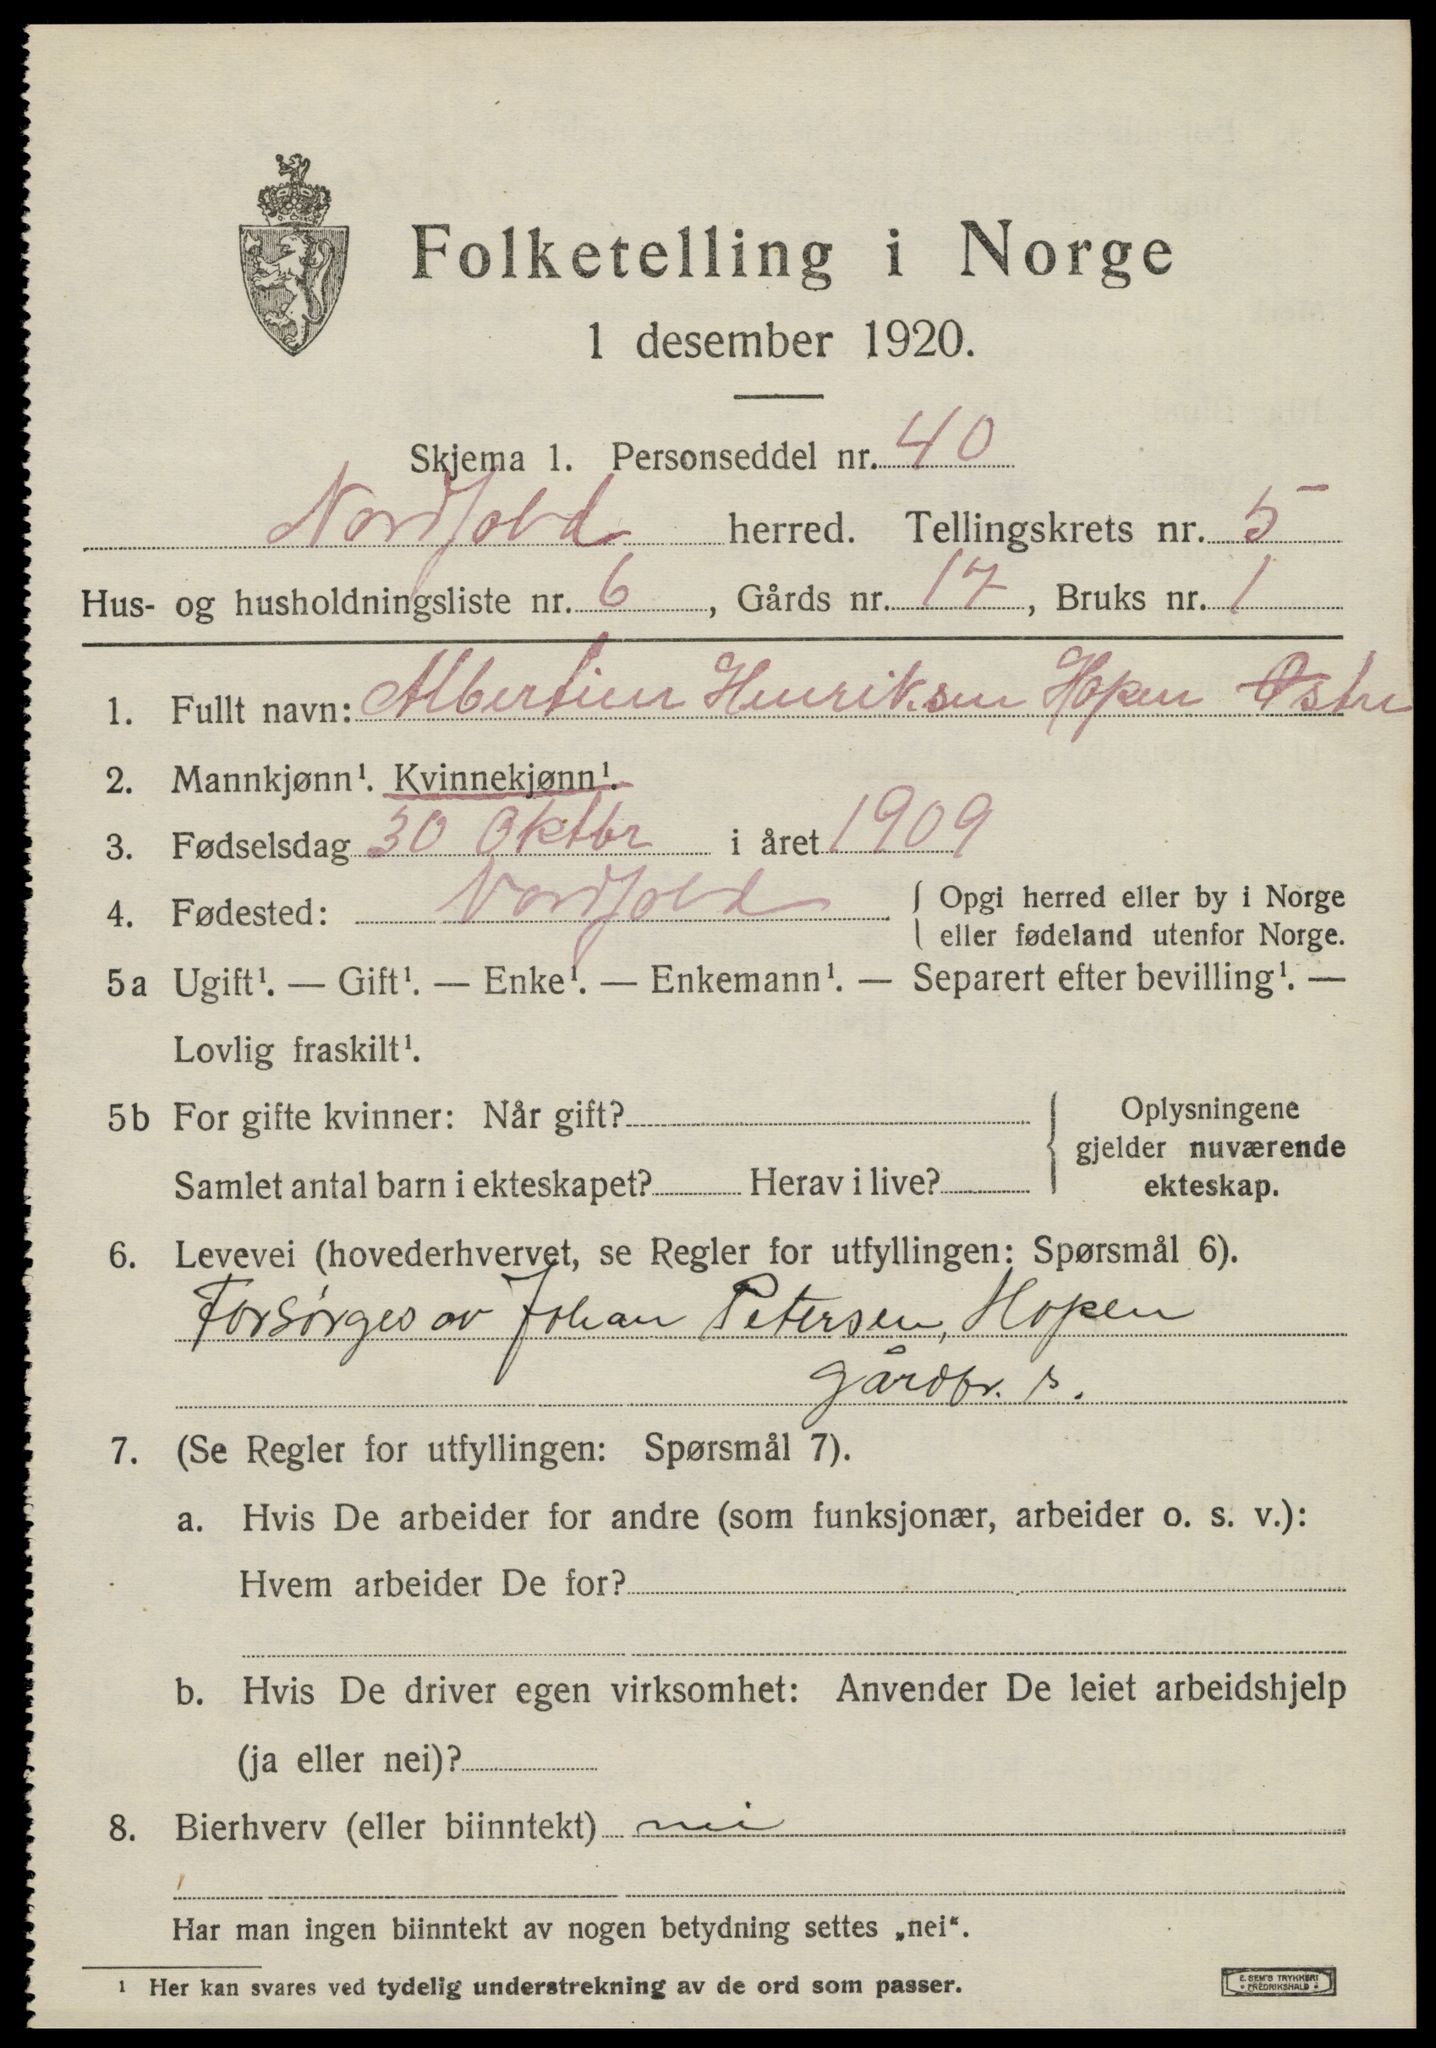 Folketelling i Norge
1 desember 1920.
Skjema 1. Personseddel nr. 40
Nordfold herred. Tellingskrets nr. 5
Hus- og husholdningsliste nr. 6, Gårds nr. 17, Bruks nr. 1
1. Fullt navn: Albertine Henriksen Hopen Østre
2. Mannkjønn¹. Kvinnekjønn¹.
3. Fødselsdag 30 Oktbr i året 1909
4. Fødested: Nordfold { Opgi herred eller by i Norge
eller fødeland utenfor Norge.
5a Ugift¹. — Gift¹. — Enke¹. — Enkemann¹. — Separert efter bevilling¹. —
Lovlig fraskilt¹.
5b For gifte kvinner: Når gift? { Oplysningene
gjelder nuværende
Samlet antal barn i ekteskapet? Herav i live? ekteskap.
6. Levevei (hovederhvervet, se Regler for utfyllingen: Spørsmål 6).
Forsørges av Johan Petersen, Hopen
gårdbr. s.
7. (Se Regler for utfyllingen: Spørsmål 7).
a. Hvis De arbeider for andre (som funksjonær, arbeider o. s. v.):
Hvem arbeider De for?
b. Hvis De driver egen virksomhet: Anvender De leiet arbeidshjelp
(ja eller nei)?
8. Bierhverv (eller biinntekt) nei
Har man ingen biinntekt av nogen betydning settes „nei“.
¹ Her kan svares ved tydelig understrekning av de ord som passer.
E. SEM'S TRYKKERI
FREDRIKSHALD